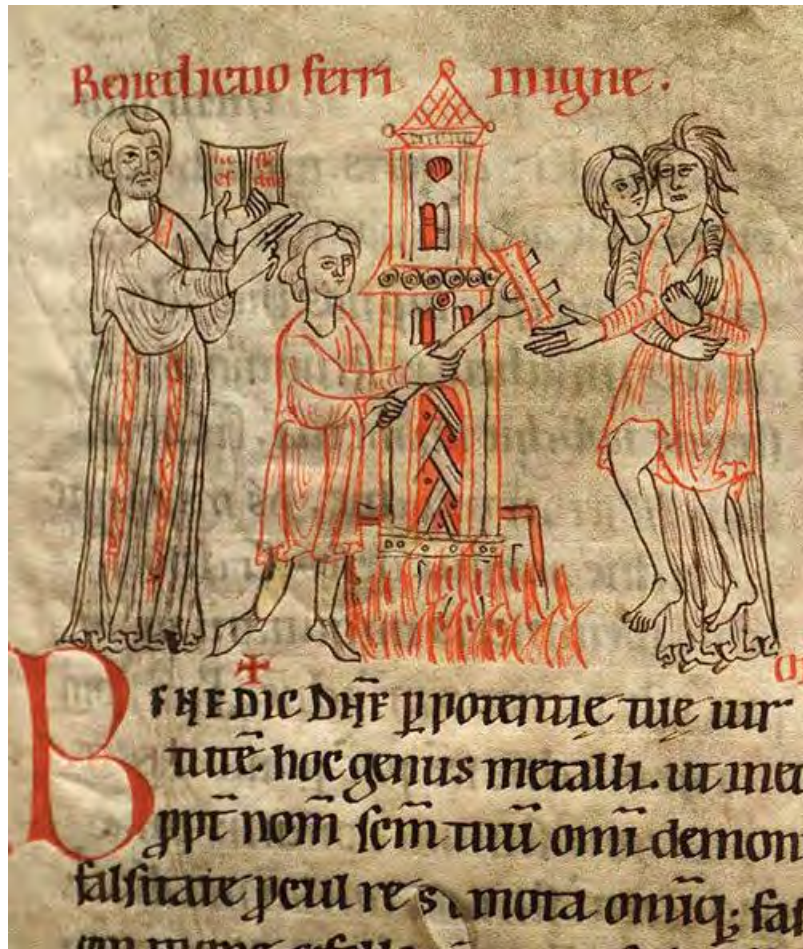 Benedictio ferri in igne.
BENEDIC DN̄E p̱ potentie tue uir
tutē hoc genus metalli. ut in ea
ꝓpt̄ nom̄ sc̄m tuū om̄i demon
falsitate ꝓcul re mota om̄iq; fas